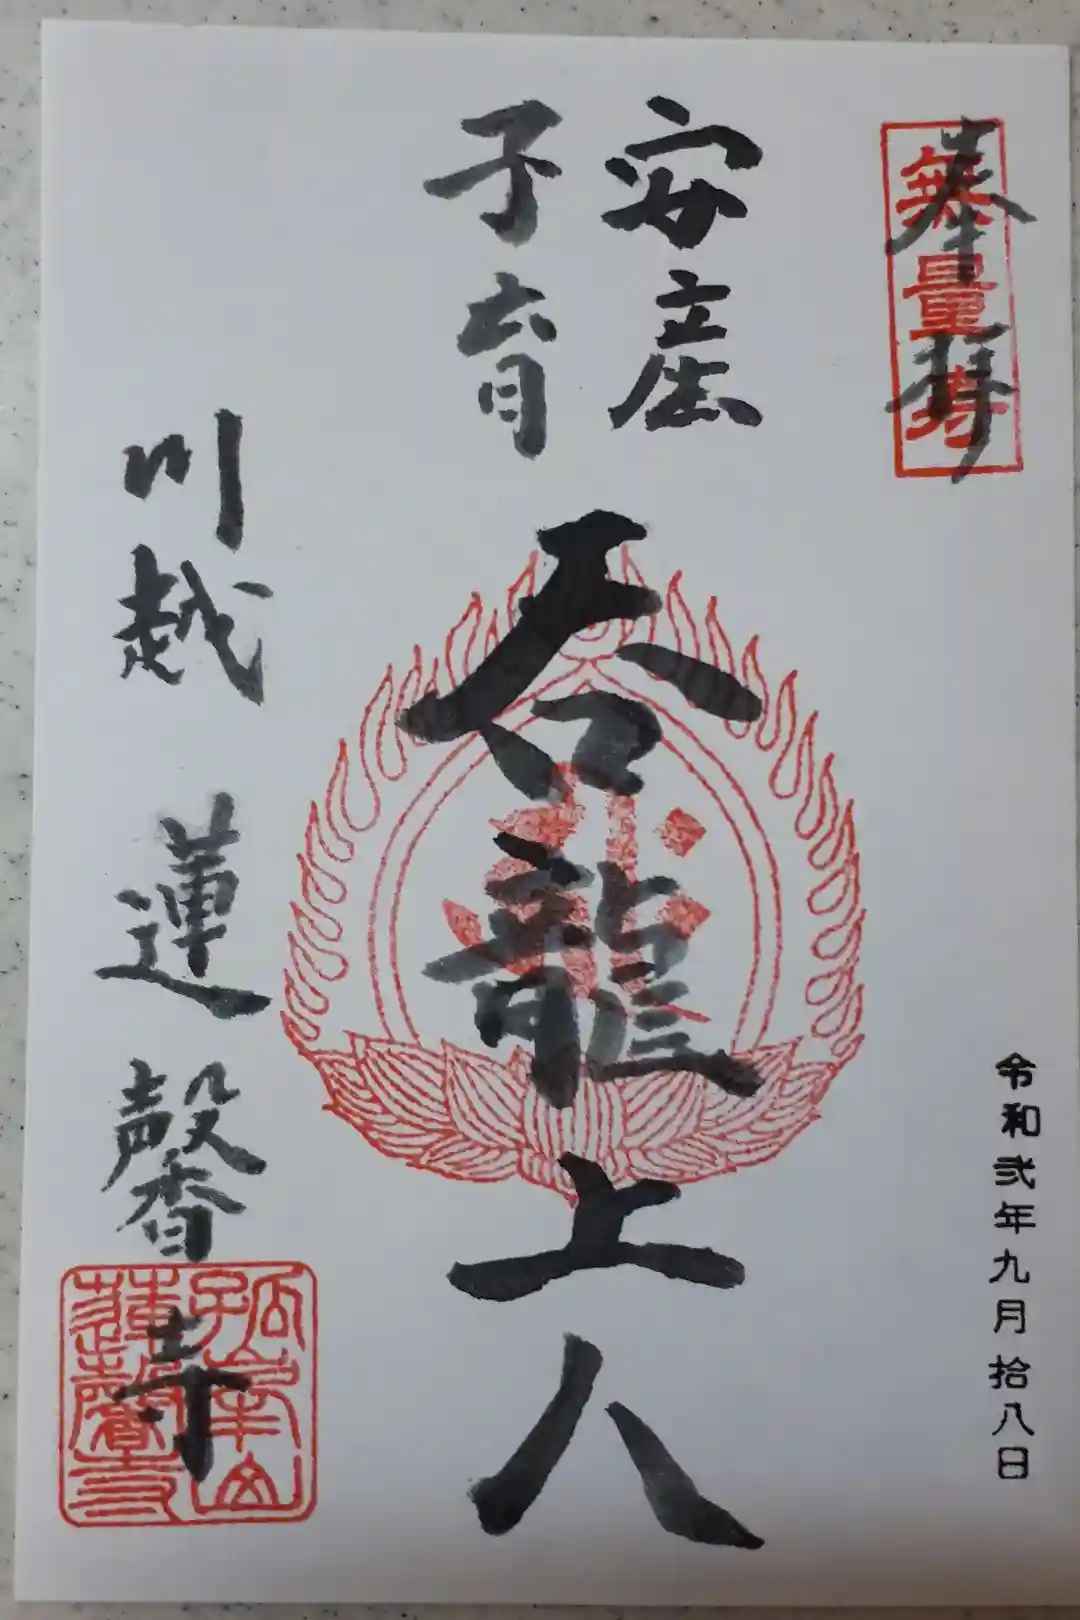 奉拝
無量寿
安産
子育
呑龍上人
川越 蓮馨寺
孤峯山
蓮馨寺
令和弐年九月拾八日